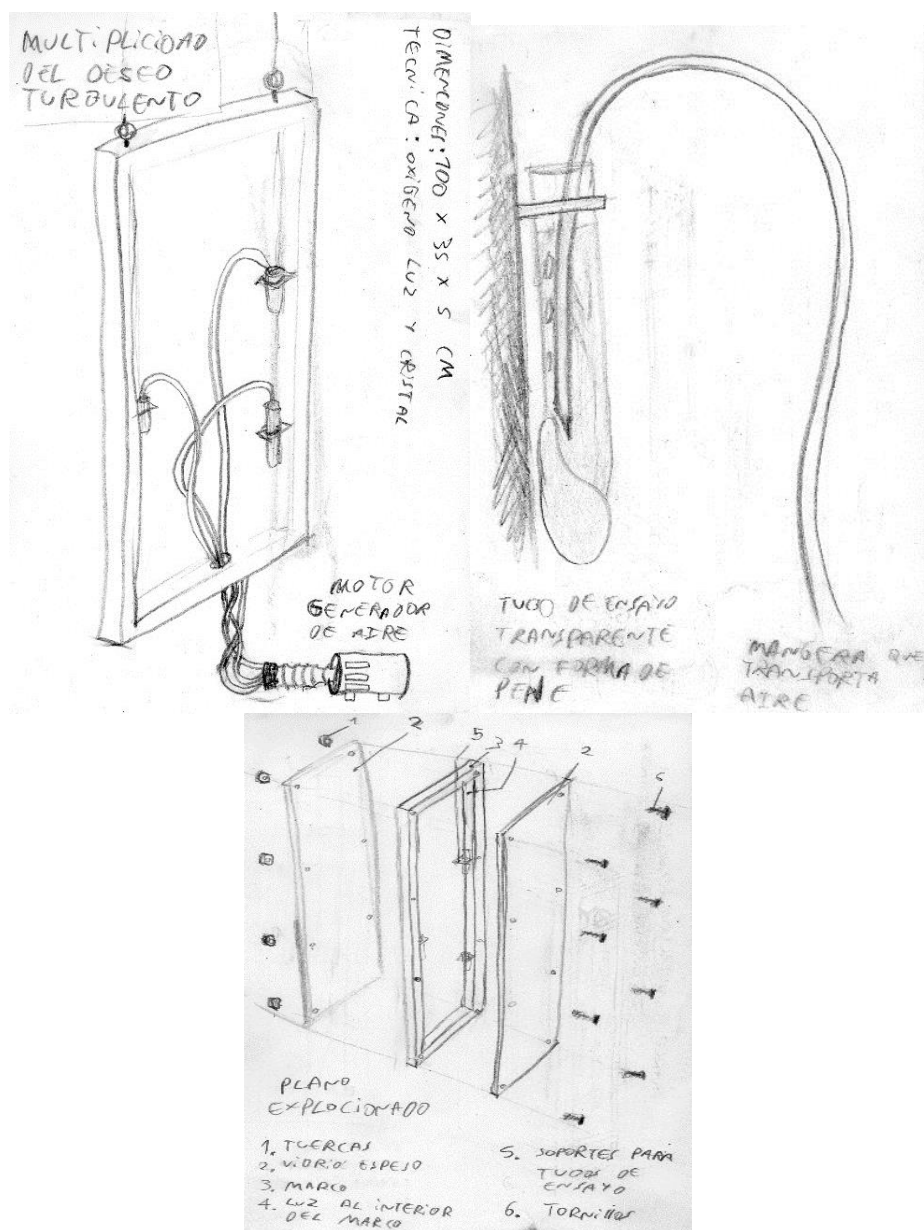 MULTIPLICIDAD
DEL DESEO
TURBULENTO
DIMENCONES: 100 x 35 x 5 CM
TECNICA: OXIGENO LUZ Y CRISTAL
MOTOR
GENERADOR
DE AIRE
TUBO DE ENSAYO
TRANSPARENTE
CON FORMA DE
PENE
MANGERA QUE
TRANSPORTA
AIRE
1
2
5
3
4
2
6
PLANO
EXPLOCIONADO
1. TUERCAS
2. VIDRIO ESPESO
3. MARCO
4. LUZ AL INTERIOR
DEL MARCO
5. SOPORTES PARA
TUBOS DE
ENSAYO
6. TORNILLOS